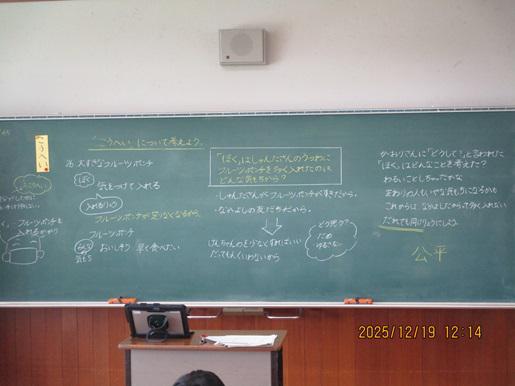 こうへい
「こうへい」について考えよう。
26 大すきなフルーツポンチ
ぼく
気をつけて入れる
フルーツポンチを
入れるかかり
フルーツポンチが足りなくなるから。
フルーツポンチ
おいしそう 早く食べたい
「ぼく」はしゅんたさんのうつわに
フルーツポンチを多く入れたのは
どんな気もちから？
・しゅんたさんがフルーツポンチがすきだから。
・なかよしの友だちだから。
けんちゃんのを少なくすればいい
だってもんくいわないから
かおりさんに「どうして？」と言われた
「ぼく」はどんなことを考えた？
わるいことしちゃったかな
まわりの人もいやな気もちになるかも
これからは なかよしだからって多く入れない
だれでも同じりょうにしよう。
公平
2025/12/19 12:14